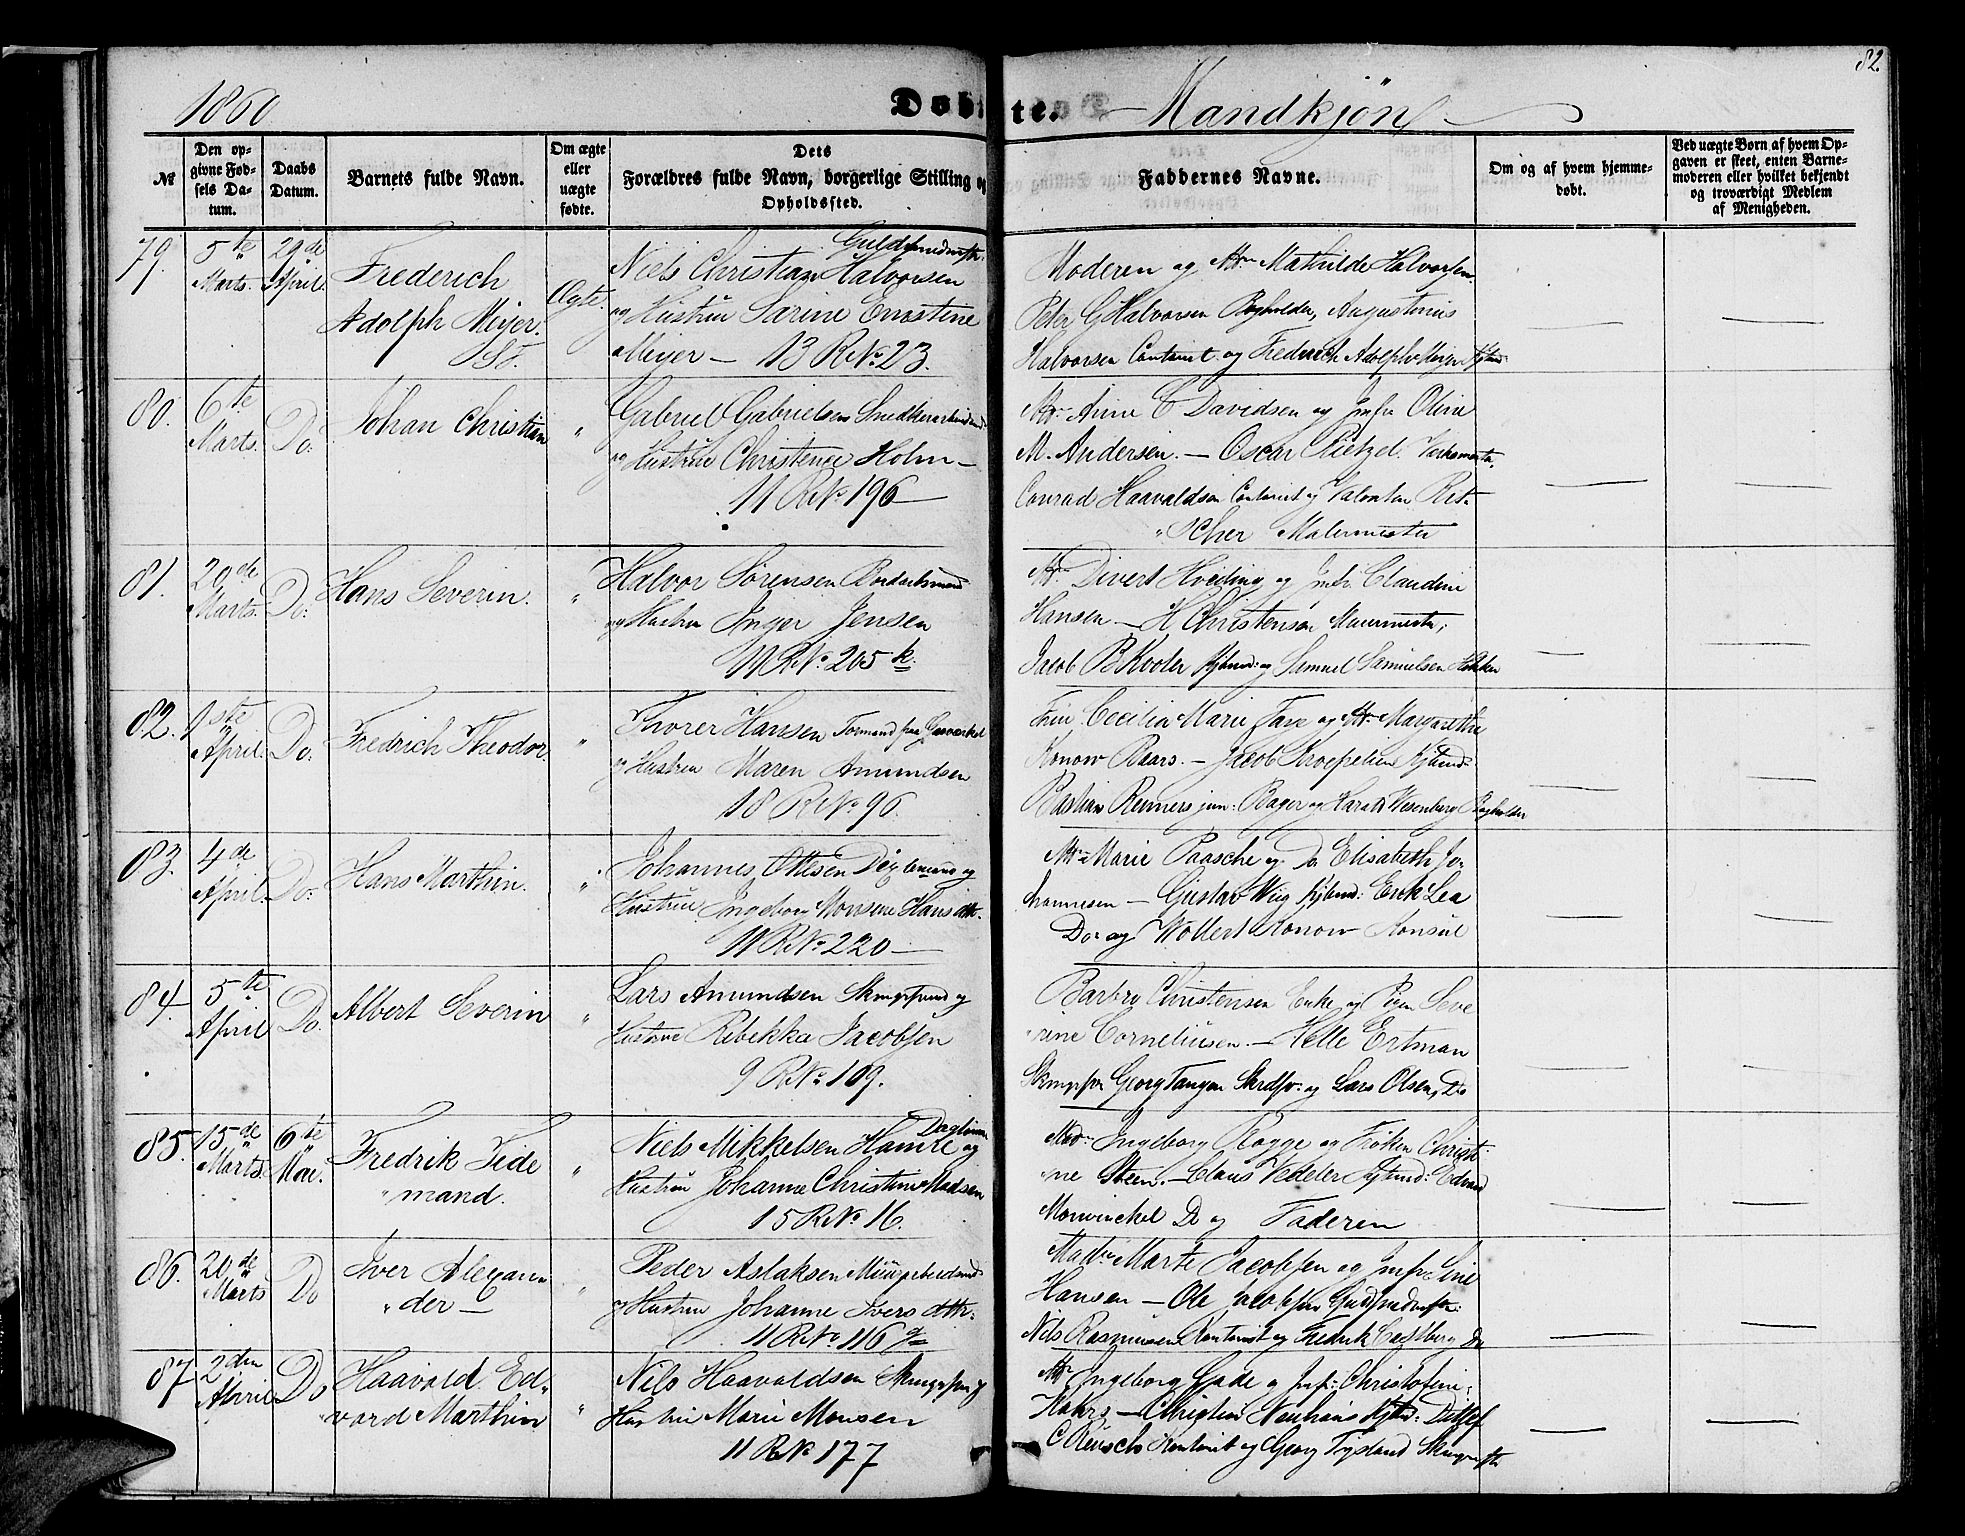 82.
1860.
Døbte. Mandkjøn
№
Den opgivne Fødsels Datum.
Daabs Datum.
Barnets fulde Navn.
Om ægte eller uægte fødte.
Dets Forældres fulde Navn, borgerlige Stilling og Opholdssted.
Faddernes Navne.
Om og af hvem hjemmedøbt.
Ved uægte Børn af hvem Opgaven er skeet, enten Barnemoderen eller hvilket bekjendt og troværdigt Medlem af Menigheden.
79. 5te Marts. 29de April. Frederich
Adolph Meyer.
Ægte.
Niels Christian Halvorsen
og Hustru Sarine Ernstine
Meyer — 13 R No. 23.
Moderen og Mathilde Halvorsen
Peter G Halvorsen Bogholder, Augustinius
Halvorsen Contorist og Frederich Adolph Meyer
80. 6te Marts. Do: Johan Christian "
Gabriel Gabrielsen
og Hustrue Christence Holm —
11 R No. 196 —
Anne C Davidsen og Jmfr Oline
M. Andersen. — Oscar
Conrad Haavaldsen Contorist og Valentin Rit-
"scher Malermester
81. 20de Marts. Do: Hans Severin. "
Halvor Sørensen
og Hustru Inger Jensen
11 R No. 265 k.
Divert Hveding og Jmfr. Claudine
Hansen — H Christensen Muurmester,
Jacob P og Samuel Samuelsen
82. 1ste April. Do: Fredrich Theodor. "
Thorer Hansen Formand paa Gasverket
og Hustru Maren Amundsen
18 R No. 96.
Cecilia Marie og Margrethe
Konow Baars. — Jacob Kroepelien Kjbmd:
Bastian Reimers jun: Bager og Harald Wesenberg Bogholder
83. 4de April. Do: Hans Marthin. "
Johannes Ottesen og
Hustrue Ingeborg Monsine Hansdtr.
11 R No. 220 —
Marie Paasche og Do Elisabeth Jo-
hannesen — Gustav Wiig Kjbmd: Erik Lea
Do og Wollert Konow Konsul
84. 5te April Do. Albert Severin "
Lars Amundsen og
Hustrue Rebekka Jacobsen
9 R No. 109.
Barbro Christensen Enke og Pigen Seve
rine Corneliusen. — Helle Ertman
Georg Tangen og Lars Olsen, Do
85. 15de Marts. 6te Mai. Fredrik Tide
"mand. "
Niels Mikkelsen og
Hustru Johanne Christine Madsen
15 R No 16.
Ingeborg Rogge og Frøken Christi
"ne Steen. — Claus Vedeler Kjbmd: Edvard
Monvinckel Do og Faderen
86. 20de Marts Do Iver Alexan
"der — "
Peder Aslaksen
og Hustru Johanne Ivers dtr.
11 R No 116
Marte Jacobsen og Jmfr: Sine
Hansen — Ole Jacobsen
Nils Rasmussen Kontorist og Fredrik Castberg Do
87 2den April Do Haavald Ed-
vard Marthin "
Nils Haavaldsen
Hustru Marie Monsen
11 R No 177
Ingeborg Gade og Jmfr: Christofine
Kahrs — Christian Neuhaus Kjbmd: Ditlef
C Reusch Kontorist og Georg